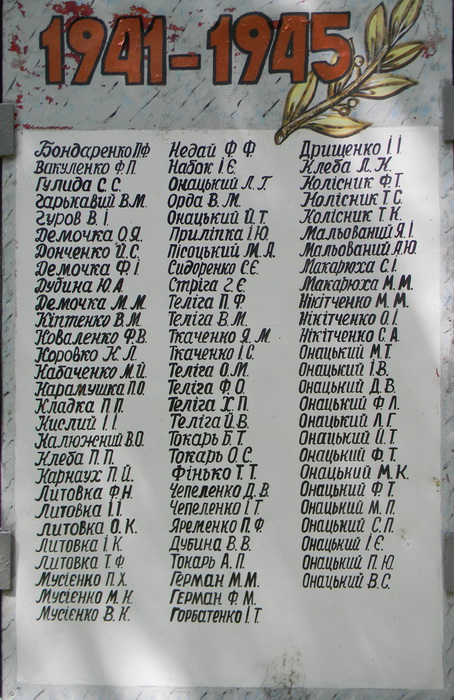 1941-1945
Бондаренко П.Ф
Вакуленко Ф.П.
Гулида С.С.
Гарькавий В.М.
Гуров В.І.
Демочка О.Я.
Донченко Й.С.
Демочка Ф.І
Дудина Ю.А
Демочка М.М.
Кіптенко В.М.
Коваленко Ф.В.
Коровко К.Л.
Кабаченко М.Й.
Карамушка П.О.
Кладка П.П.
Кислий І.І
Калюжений В.О.
Клеба П.П.
Карнаух П.Й.
Литовка Ф.Н.
Литовка І.І.
Литовка О.К.
Литовка І.К.
Литовка Т.Ф
Мусієнко П.Х.
Мусієнко М.Н.
Мусієнко В.К.
Недай Ф.Ф.
Набок І.Є.
Онацький Л.Г.
Орда В.М.
Онацький Й.Т.
Приліпка І.Ю.
Пісоцький М.Л.
Сидоренко Є.Є.
Стріга Г.Є.
Теліга П.Ф.
Теліга В.М.
Ткаченко Я.М.
Ткаченко І.С.
Теліга О.М.
Теліга Ф.О.
Теліга Х.П.
Теліга Й.В.
Токарь Б.Т.
Токарь О.С.
Фінько Т.Т.
Чепеленко Д.В.
Чепеленко І.Т
Яременко П.Ф.
Дубина В.В.
Токарь А.П.
Герман М.М.
Герман Ф.М.
Горбатенко І.Т.
Дрищенко І.І
Клеба Л.К.
Колісник Ф.Т.
Колісник Т.С.
Колісник Т.К.
Мальований Я.І.
Мальований Л.Ю.
Макарюха С.І.
Макарюха М.М.
Нікітченко М.М.
Нікітченко О.І.
Нікітченко С.А.
Онацький М.Т.
Онацький І.В.
Онацький Д.В.
Онацький Ф.Л.
Онацький Л.Г.
Онацький Й.Т.
Онацький Ф.Т.
Онацький М.К.
Онацький Ф.Т.
Онацький М.П.
Онацький С.П.
Онацький І.Є.
Онацький П.Ю.
Онацький В.С.